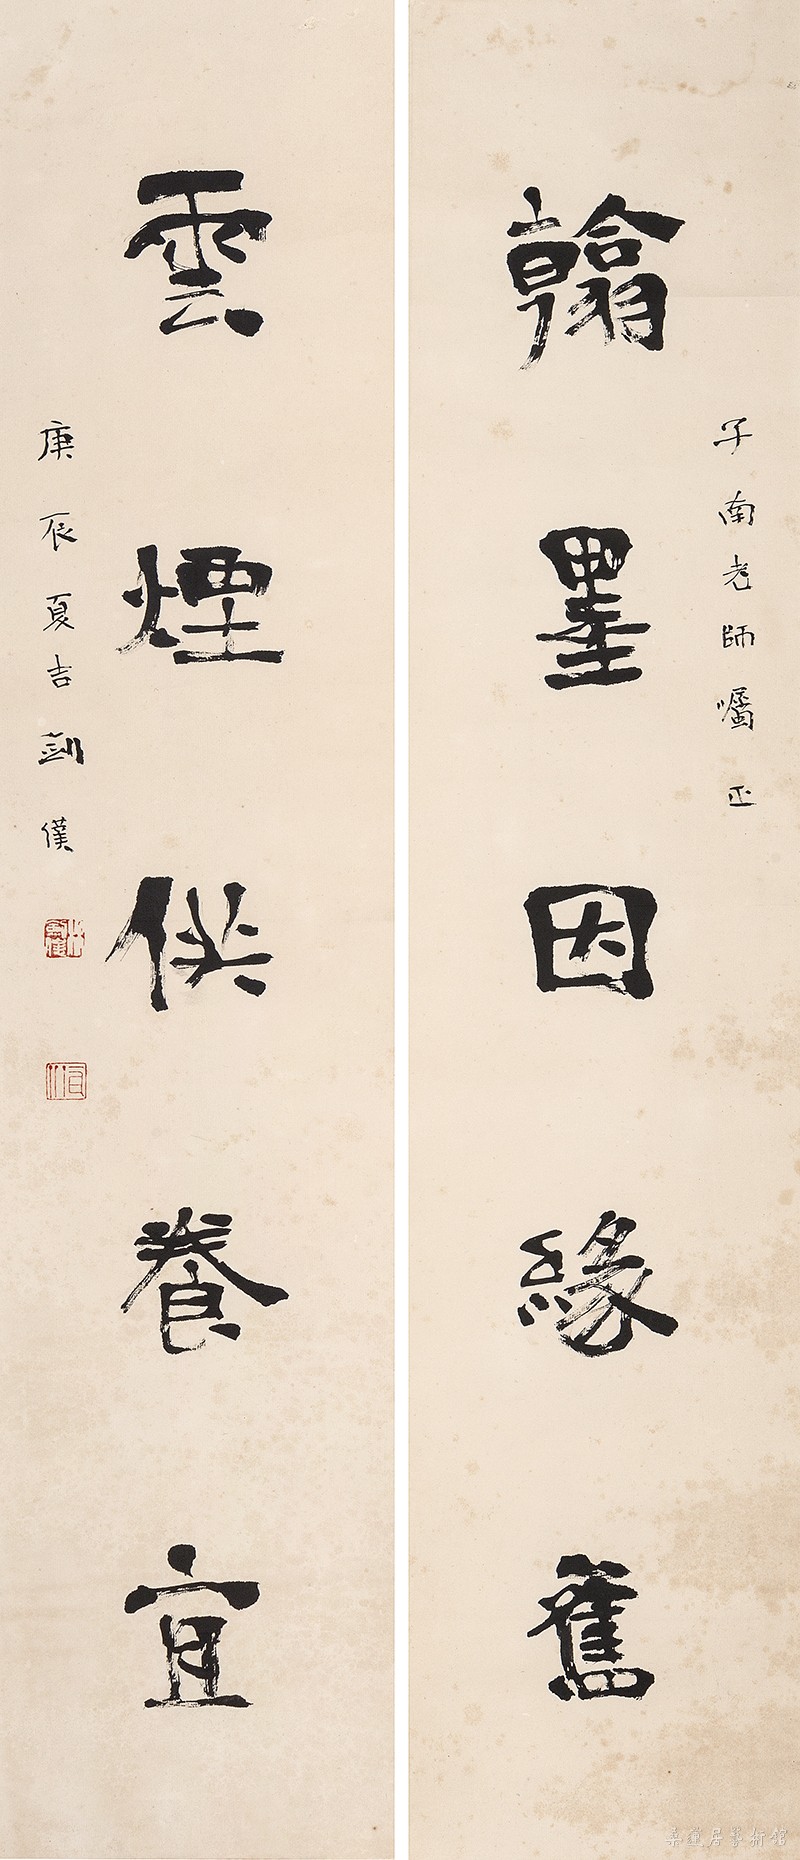 子南老師囑正
翰墨因緣舊
雲煙供養宜
庚辰夏吉
桑蓮居藝術館